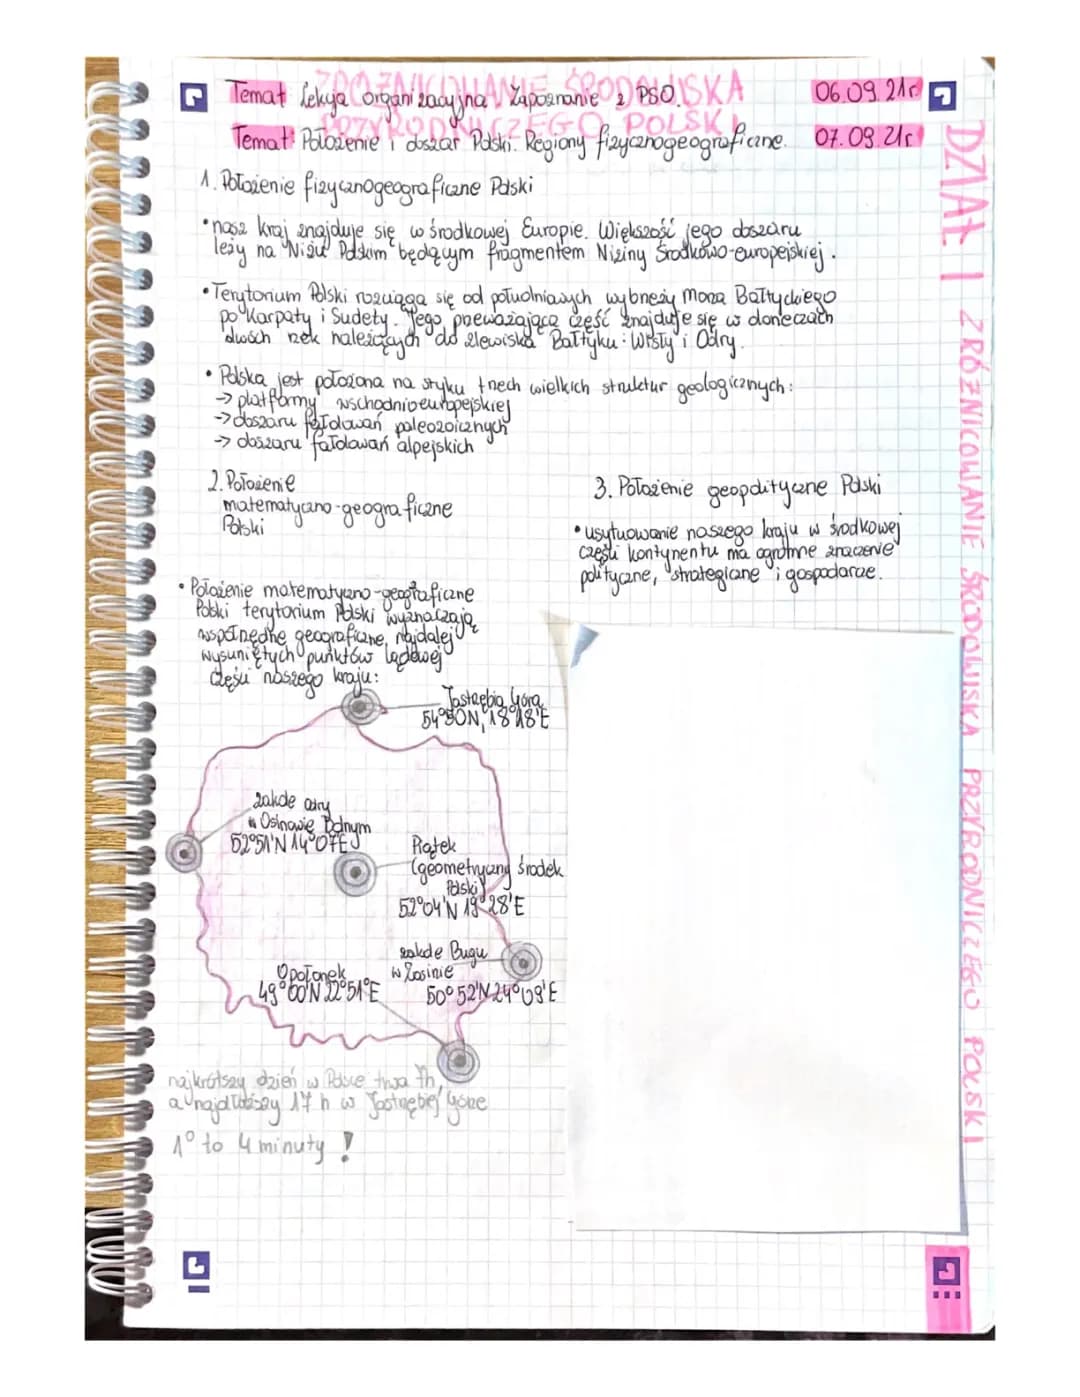 ZRÓŻNICOWANIE ŚRODOWISKA
PRZYRODNICZEGO POLSKI
Temat Lekcja organizacyjna Zapoznanie z PSO.
06.09.21r
Temat: Położenie i obszar Polski. Regiony fizycznogeograficzne.
07.09.21r
1. Położenie fizycznogeograficzne Polski
•nasz kraj znajduje się w środkowej Europie. Większość jego obszaru
leży na Niżu Polskim będącym fragmentem Niziny Środkowo-europejskiej.
•Terytorium Polski rozciąga się od południowych wybrzeży Morza Bałtyckiego
po Karpaty i Sudety. Jego przeważająca część znajduje się w dorzeczach
dwóch rzek należących do zlewiska Bałtyku: Wisły i Odry.
• Polska jest położona na styku trzech wielkich struktur geologicznych:
→ platformy wschodnioeuropejskiej
→ obszaru fałdowań paleozoicznych
→ obszaru fałdowań alpejskich
2. Położenie
matematyczno-geograficzne
Polski
• Położenie matematyczno-geograficzne
Polski terytorium Polski wyznaczają
współrzędne geograficzne najdalej
wysuniętych punktów lądowej
części naszego kraju:
Jastrzębia Góra
54°50N, 18°18'E
zakole Odry
w Osinowie Dolnym
52°51'N 14°07E
Piątek
(geometryczny środek
Polski)
52°04'N 19°28'E
zakole Bugu
w Zosinie
50°52'N 24°09'E
Opołonek
49°00'N 22°51'E
najkrótszy dzień w Polsce trwa 7h,
a najdłuższy 17 h w Jastrzębiej Górze
1° to 4 minuty !
3. Położenie geopolityczne Polski
• usytuowanie naszego kraju w środkowej
części kontynentu ma ogromne znaczenie
polityczne, strategiczne i gospodarcze.
DZIAŁ I ZRÓŻNICOWANIE ŚRODOWISKA PRZYRODNICZEGO POLSKI